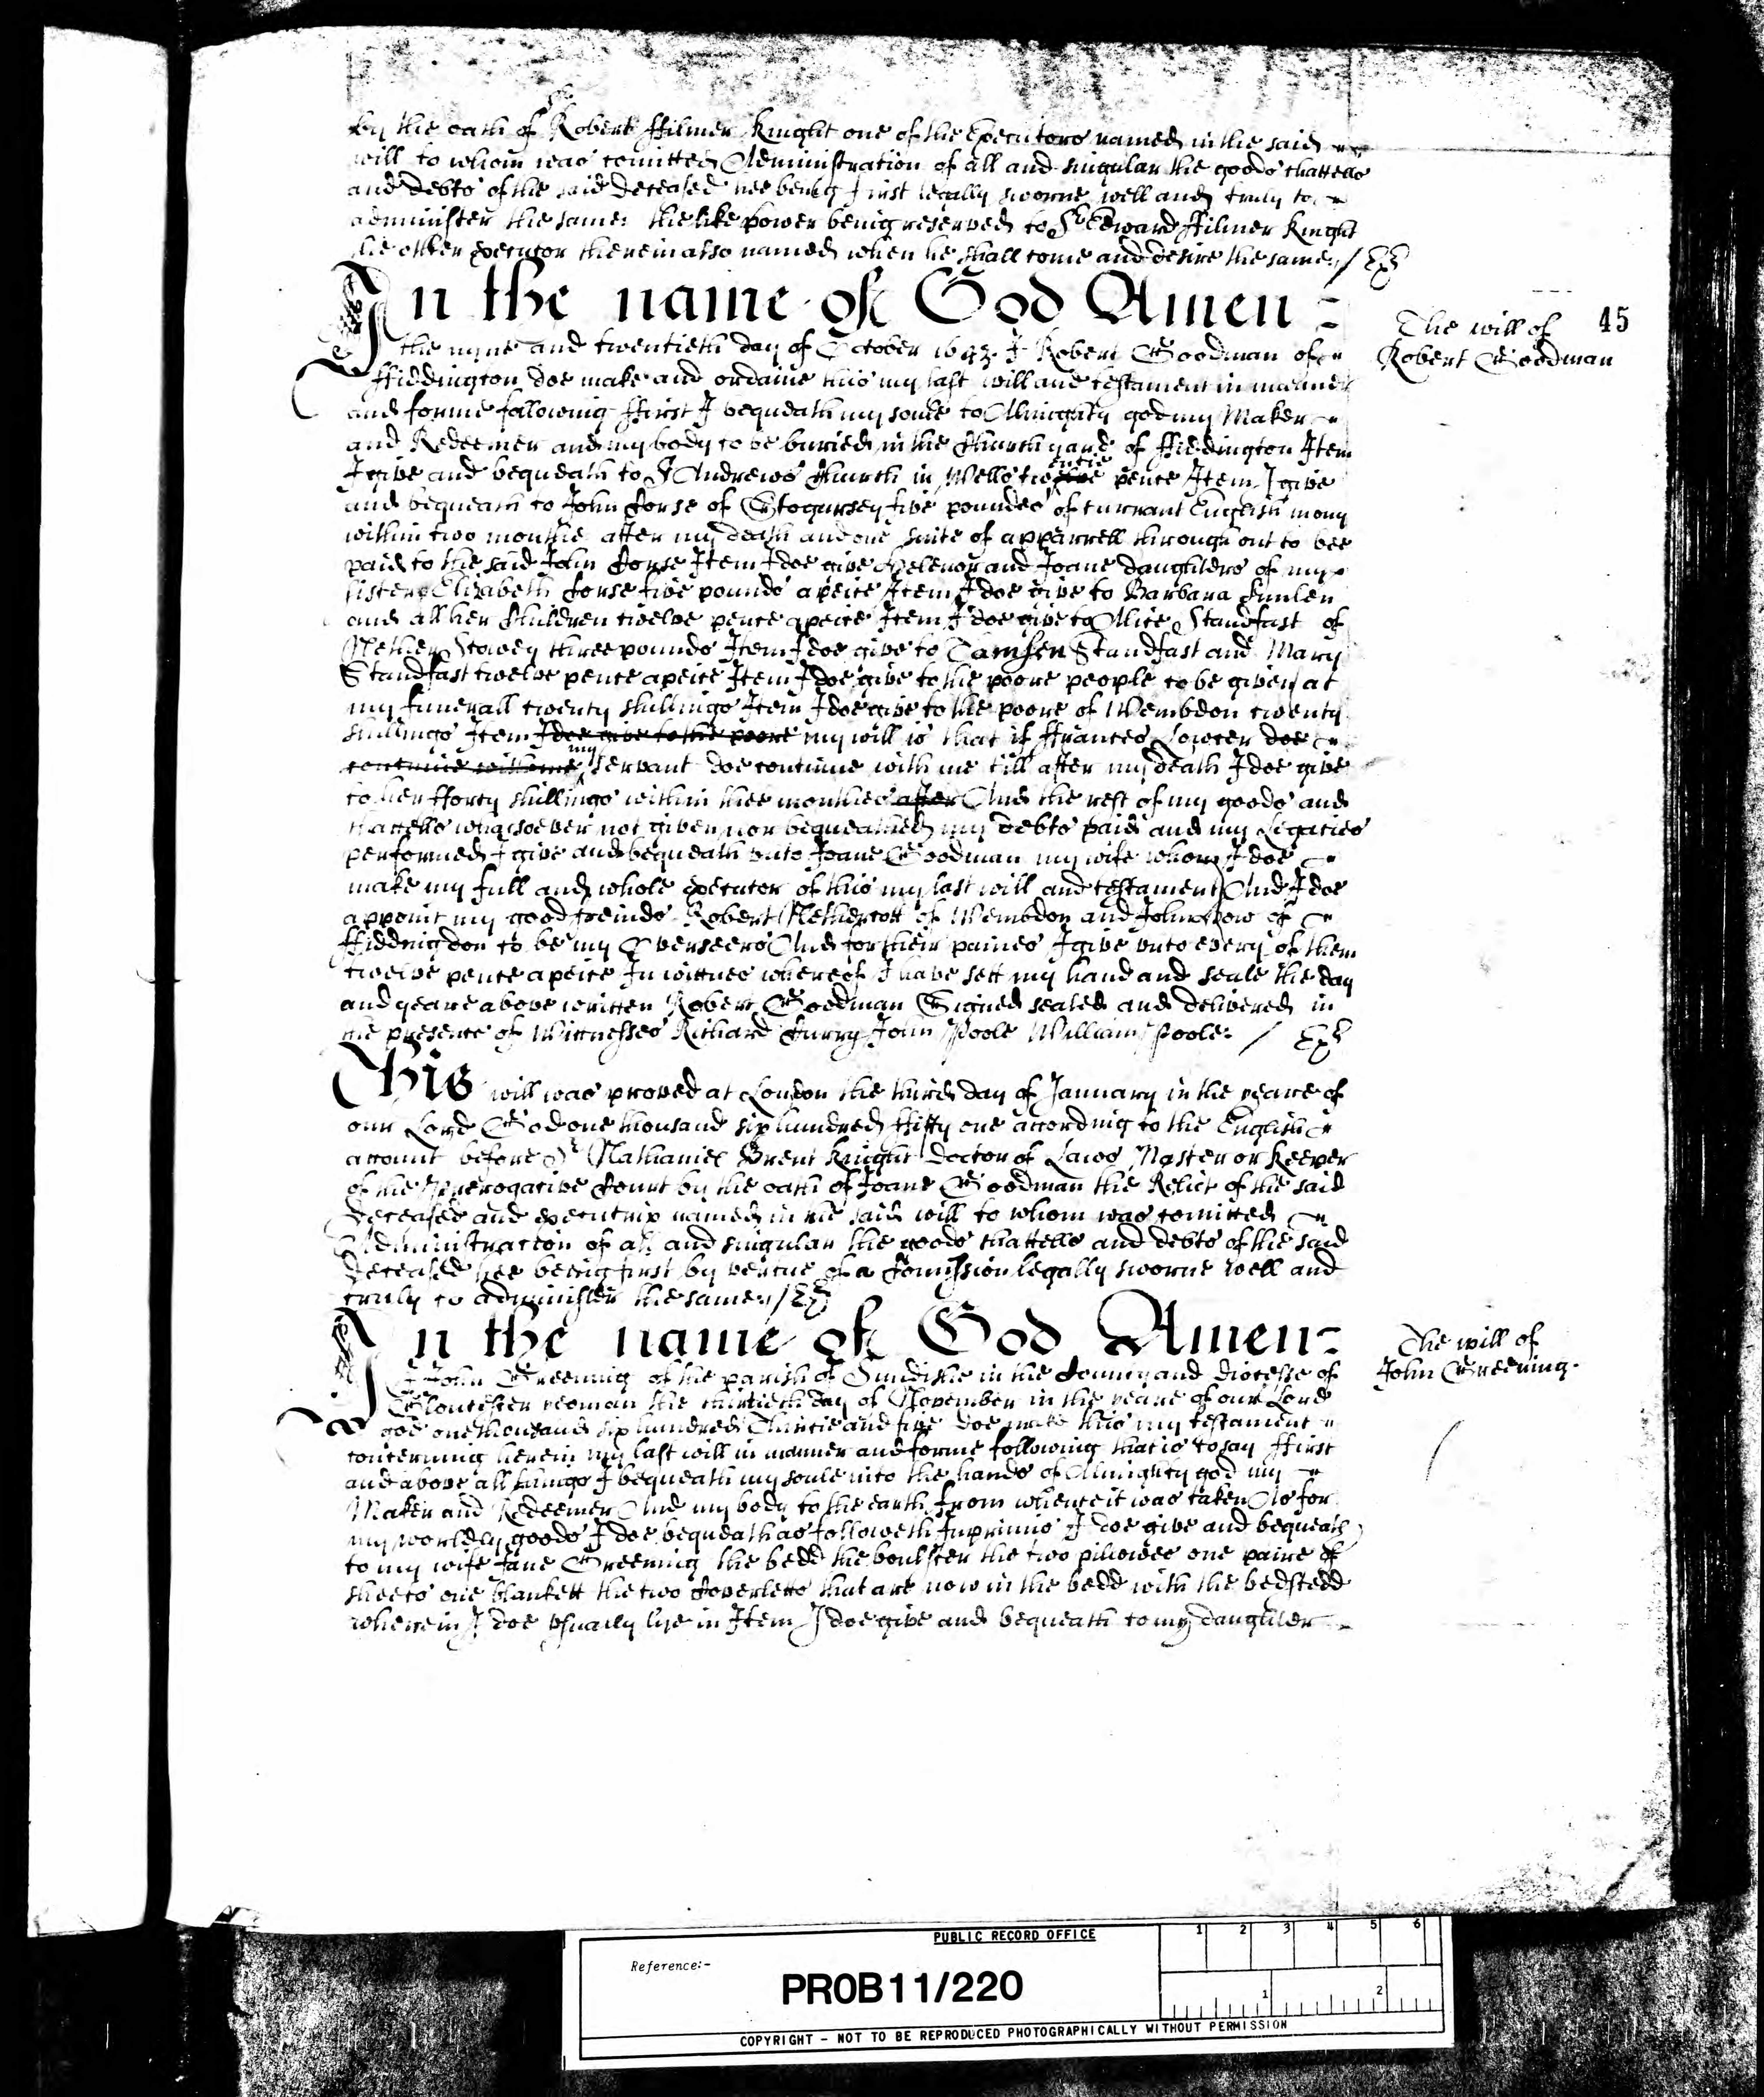 by the oath of Sr Robert ffilmer Knight one of the Executors named in the said
will to whom was comitted Administration of all and singular the goods chattells
and debts of the said deceased hee being first legally sworne well and truly to
administer the same: the like power being reserved to Sr Edward ffilmer Knight
the other Executor therein also named when he shall come and desire the same:/ Exr
In the name of God Amen
The will of 45
Robert Goodman
the nyne and twentieth day of October I Robert Goodman of
ffiddington doe make and ordaine this my last will and testament in manner
and forme following ffirst I bequeath my soule to Almighty god my Maker
and Redeemer and my body to be buried in the Church yard of ffiddington Item
I give and bequeath to St Andrews Church in Wells pence Item I give
and bequeath to John Corse of Stogursey five poundes of currant English mony
within two monthe after my death and one suite of apparrell through out to bee
paid to the said John Corse Item I doe give Helenor and Joane daughters of my
sister Elizabeth Corse five pounds apeice Item I doe give to Barbara
and all her Children twelve pence apeice Item I doe give to Alice Standfast of
Nether Stowey three pounds Item I doe give to Tamsen Standfast and Mary
Standfast twelve pence apeice Item I doe give to the poore people to be given at
my funerall twenty shillings Item I doe give to the poore of Wembdon twenty
shillings Item I doe give to the poore my will is that if ffrances doe
continue with me my servant doe continue with me till after my death I doe give
to her fforty shillings within three monthes after And the rest of my goods and
chattells whatsoever not given nor bequeathed my debts paid and my Legacies
performed I give and bequeath unto Joane Goodman my wife whom I doe
make my full and whole Executor of this my last will and testament And I doe
appoint my good freinds Robert Nethercott of Wembdon and John of
ffiddingdon to be my Overseers And for their paines I give unto every of them
twelve pence apeice In wittnes whereof I have sett my hand and seale the day
and yeare above written Robert Goodman Signed sealed and delivered in
the presence of Wittnesses Richard Curry John Poole William Poole:/ Exr
This will was proved at London the third day of January in the yeare of
our Lord God one thousand six hundred ffifty one according to the English
account before Sr Nathaniel Brent Knight Doctor of Laws Master or Keeper
of the Prerogative Court by the oath of Joane Goodman the Relict of the said
deceased and executrix named in the said will to whom was comitted
Administration of all and singular the goods chattells and debts of the said
deceased shee being first by vertue of a Comission legally sworne well and
truly to administer the same:/ Exr
In the name of God Amen
The will of
John Greening.
I John Greening of the parish of in the County and diocesse of
Gloucester yeoman the thirtieth day of November in the yeare of our Lord
god one thousand six hundred Thirtie and five doe make this my testament
concerning herein my last will in manner and forme following that is to say ffirst
and above all things I bequeath my soule into the hands of Almighty god my
Maker and Redeemer And my body to the earth from whence it was taken As for
my worldly goods I doe bequeath as followeth Inprimis I doe give and bequeath
to my wife Jane Greening the bedd the boulster the two pillowes one paire of
sheets one blankett the two Coverletts that are now in the bedd with the bedstedd
wherein I doe usually lye in Item I doe give and bequeath to my daughter
PUBLIC RECORD OFFICE
1 2 3 4 5 6
Reference:-
PROB 11/220
1 2
COPYRIGHT - NOT TO BE REPRODUCED PHOTOGRAPHICALLY WITHOUT PERMISSION